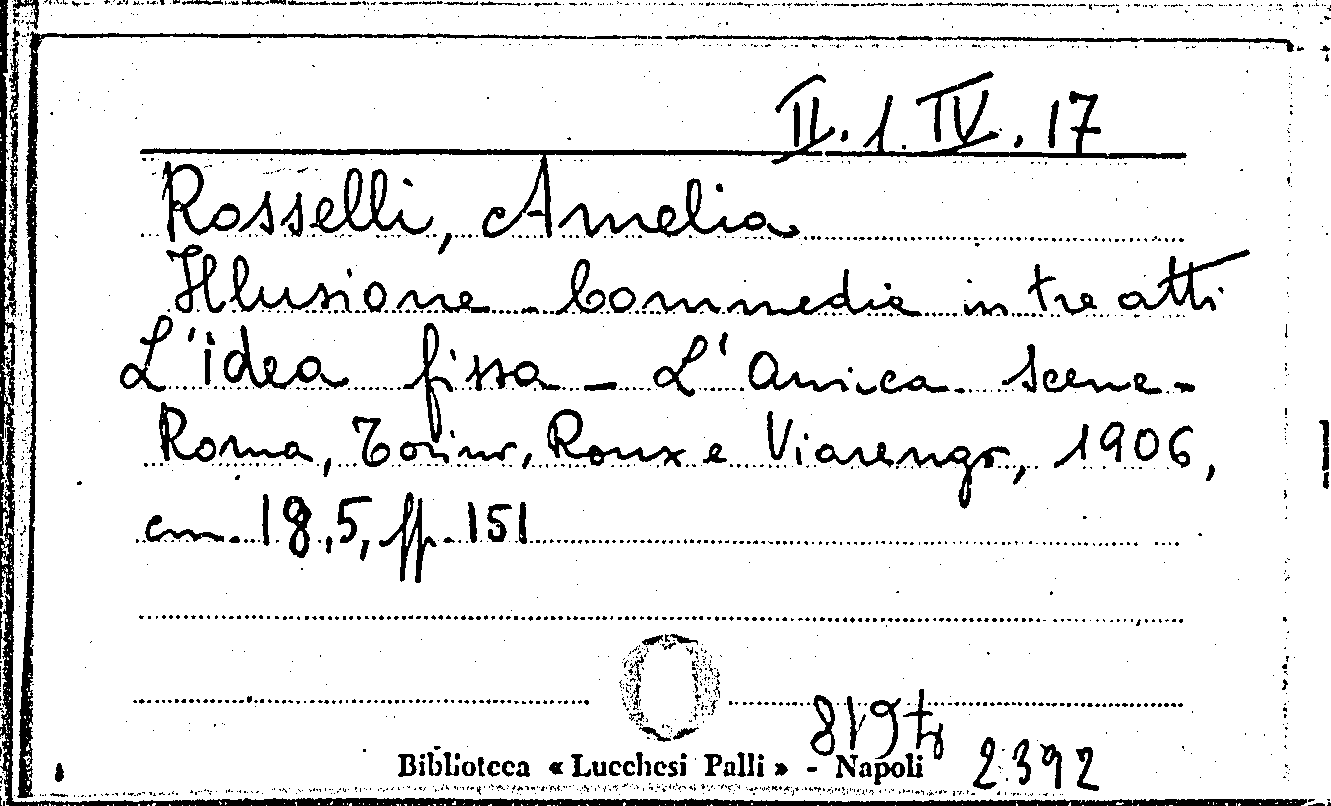 II. 1. IV. 17
Rosselli, Amelia
Illusione - Commedia in tre atti
L'idea fissa - L'Amica. Scene -
Roma, Torino, Roux e Viarengo, 1906,
cm. 18,5, pp. 151
Biblioteca « Lucchesi Palli » - Napoli
2392